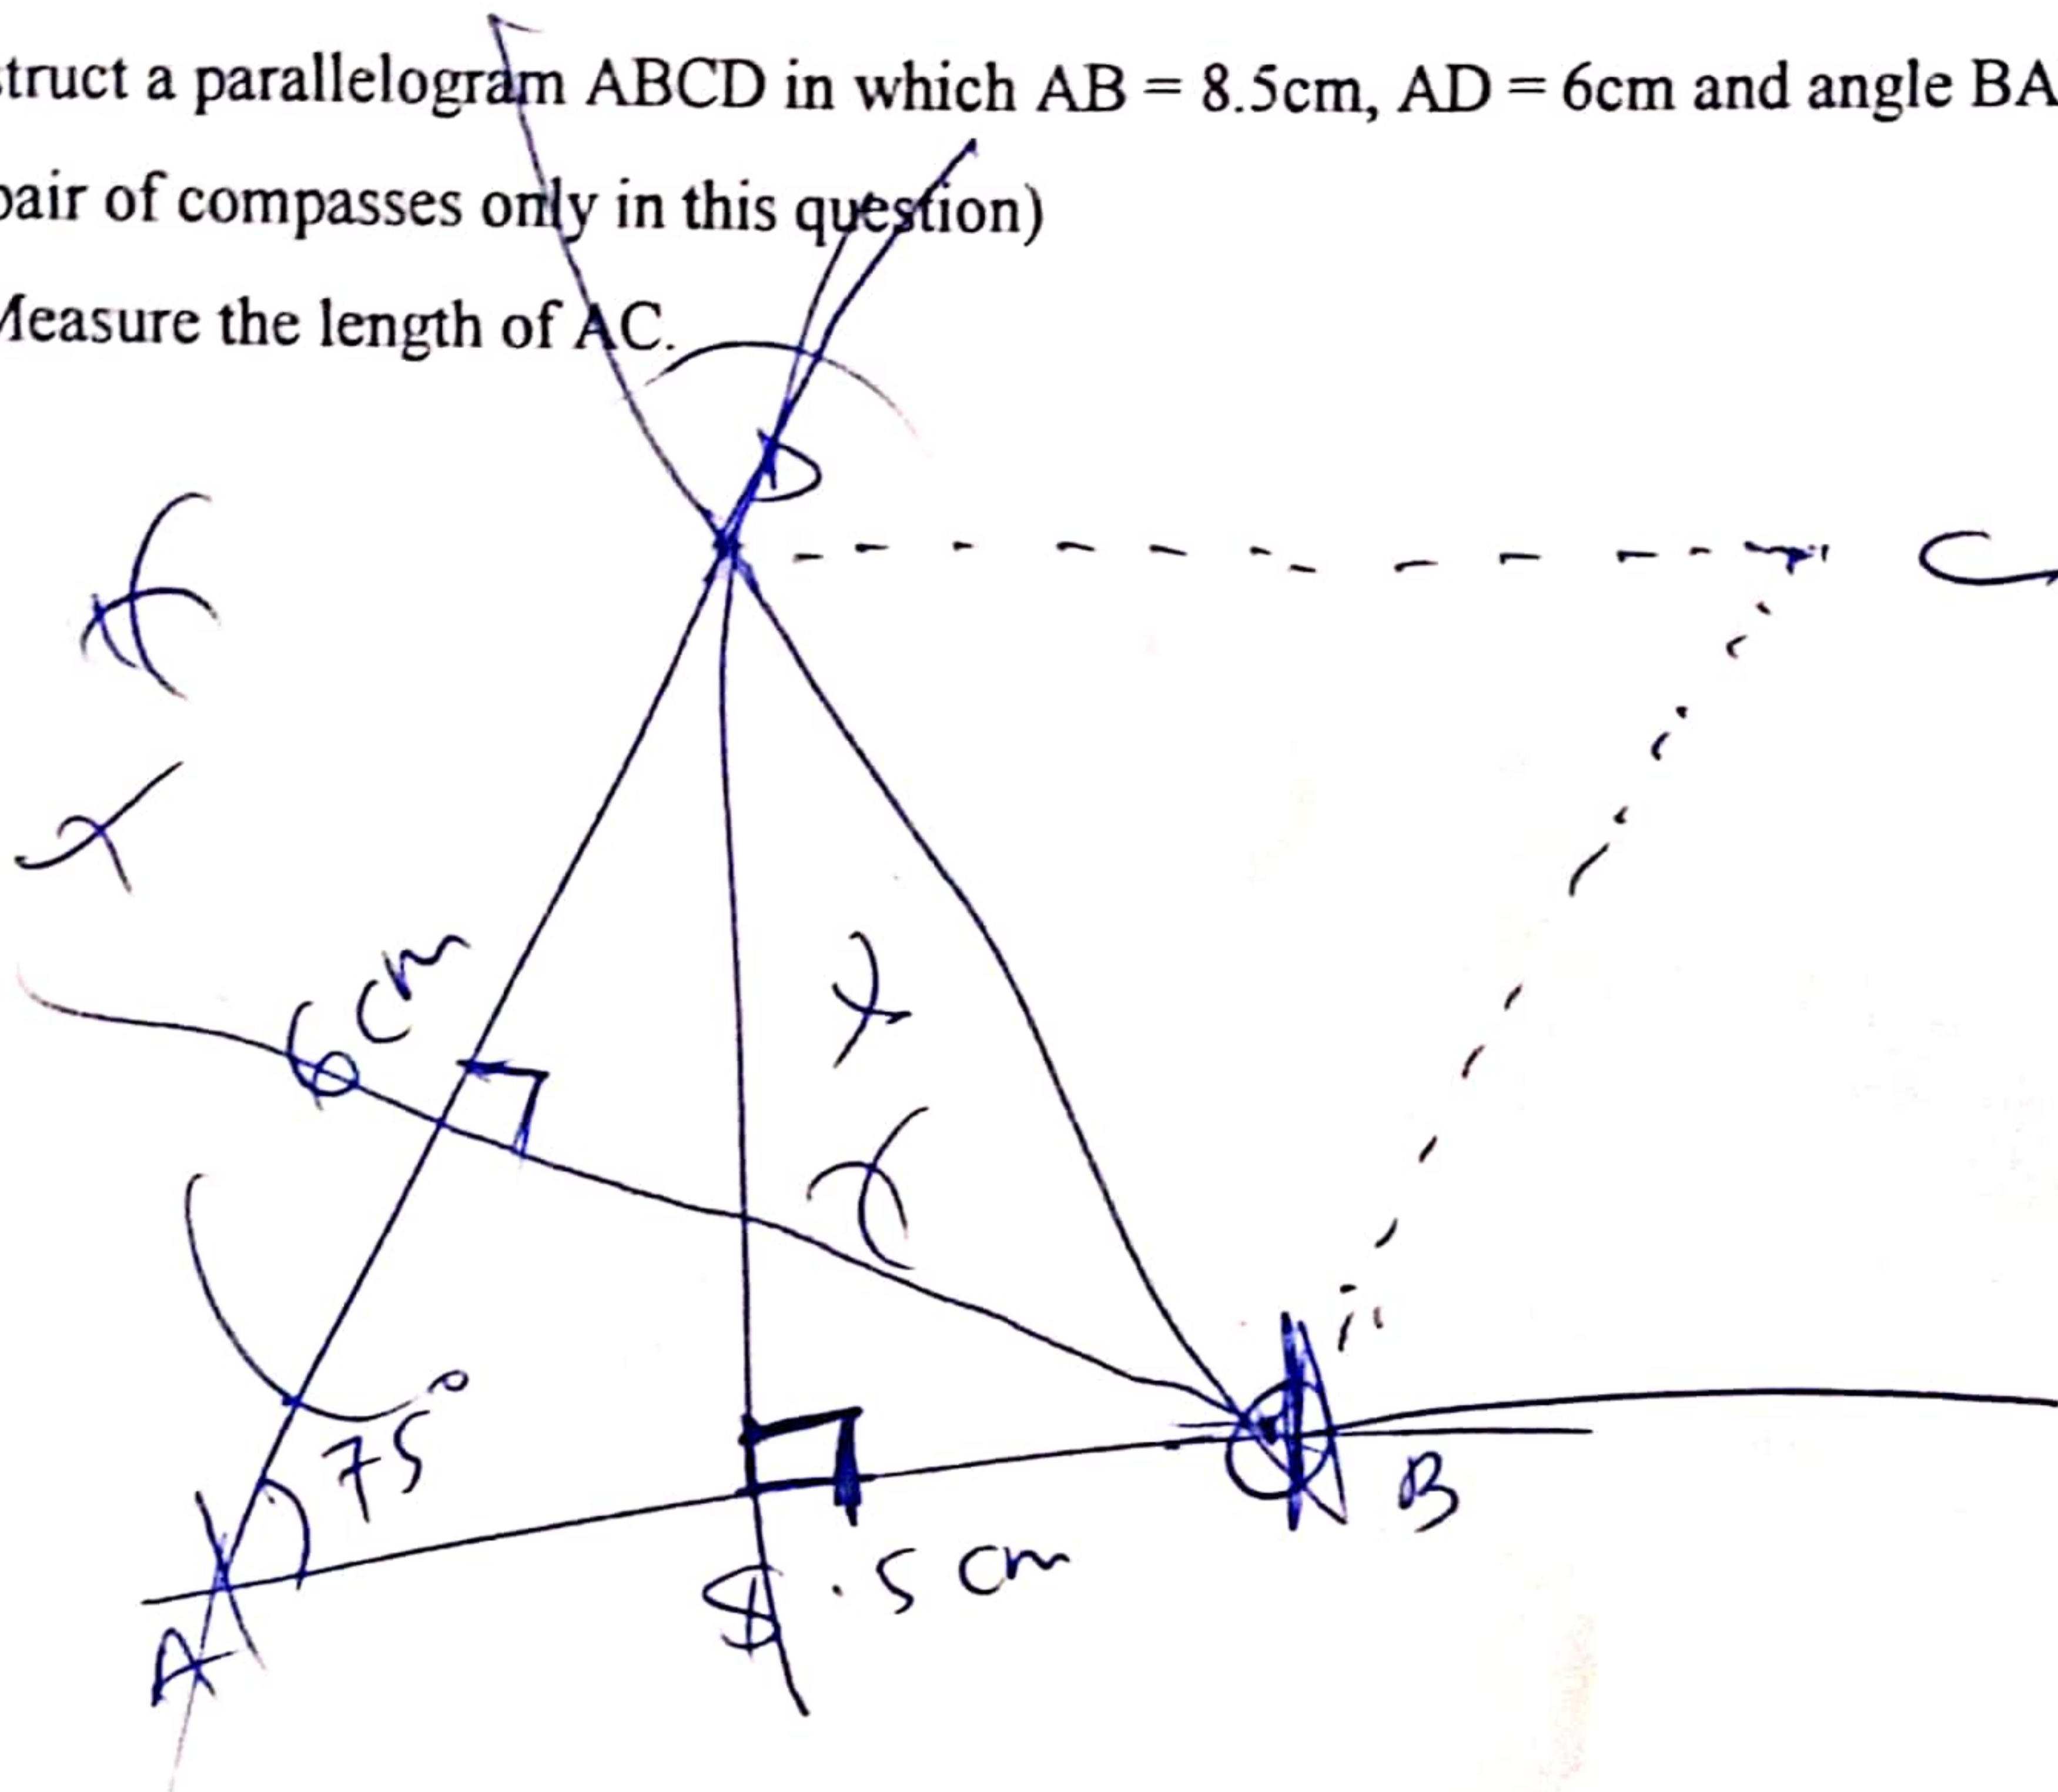 truct a parallelogram ABCD in which AB = 8.5cm, AD = 6cm and angle BA
pair of compasses only in this question)
Measure the length of AC.
D
C
6 cm
75°
B
8.5 cm
A